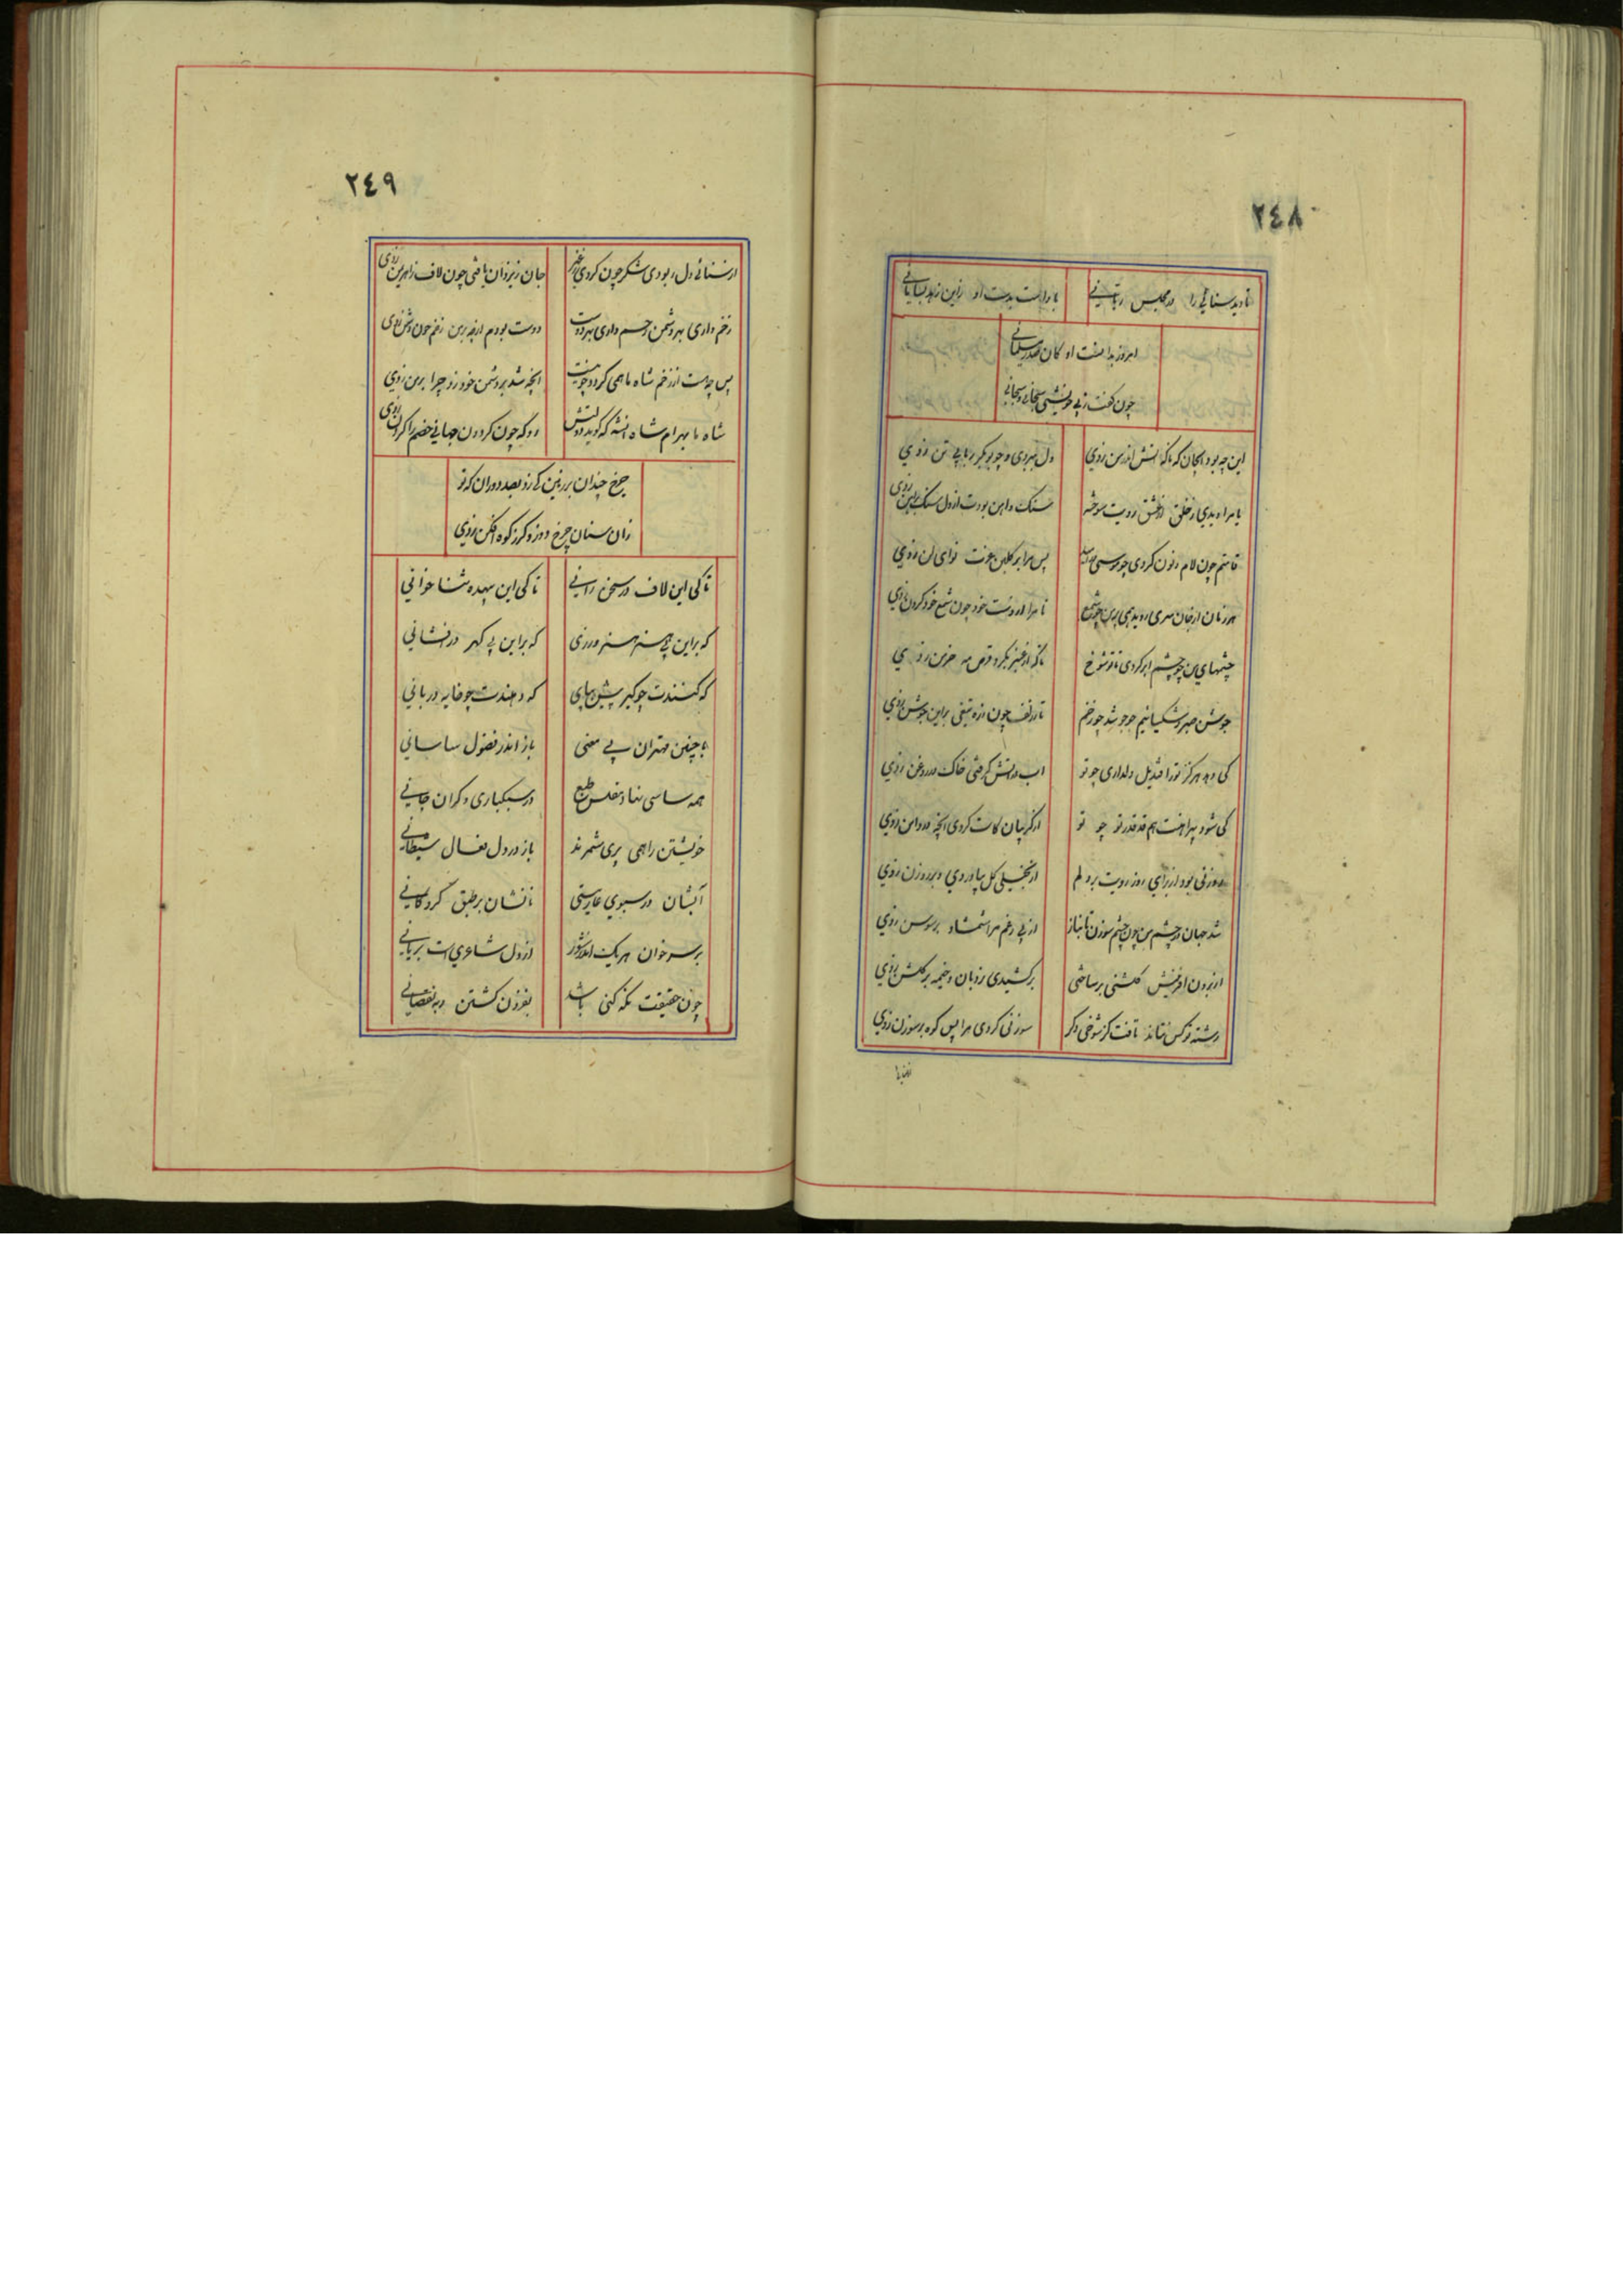 ٢٤٨
تا دید سنائی را در مجلس ربانی
با او است بدست او زین زهد
امروز بدانست او کان صدر سلیمانی
چون گفت ز بی خویشی سبحانی و سبحانی
این چه بود ای جان که ناگه آتش اندر من زدی
دل ببردی و چو بوبکر ربابی تن زدی
یا مرا دیدی ز خلق از عشق رویت سوخته
سنگ و آهن بودت از دل سنگ بر آهن زدی
قامتم چون لام و نون کردی چو موسی
پس مرا بر گلبن عونت نوای لن زدی
هر زمان از جان سری روید همی بر من چو شمع
تا مرا از دست خود چون شمع خود گردن زدی
چشمهای من چو چشم ابر کردی تا تو شوخ
ناگه از عنبر بگرد قرص مه خرمن زدی
جوشن صبر و شکیبائیم جوجو شد چو زخم
تا زلف چون زره تیغی بر این جوشن زدی
کی دهد هرگز تو را قندیل دلداری چو تو
آب در آتش گرفتی خاک در روغن زدی
کی شود پیراهنت هم قد قدر تو چو تو
از گریبان کاست کردی آنچه در دامن زدی
روزنی بود از برای روز رویت بر دلم
از بخیلی گل بیاوردی و بر روزن زدی
شد جهان در چشم من چون چشم سوزن تا بناز
از پی رغم مرا شمشاد بر سوسن زدی
از برون آفرینش گلشنی بر ساختی
برکشیدی نردبان و خیمه بر گلشن زدی
رشته تو کس نتاند تافت کز شوخی دگر
سوزنی کردی مرا پس کوه بر سوزن زدی
٢٤٩
از سنائی دل ربودی شکر چون کردی ز غیر
جان ز یزدان یافتی چون لاف ز اهریمن زدی
زخم داری بهر دشمن رحم داری بهر دوست
دوست بودم از چه بر من زخم چون دشمن زدی
پس چه مست از زخم شاه ما همی گردد چو نیست
آنچه شد بر دشمن خود زد چرا بر من زدی
شاه ما بهرام شاه آن شه که گوید دولتش
رو که چون گردون جهانی خصم را گردن زدی
چرخ چندان بر زمین کی زد بصد دوران که تو
زان سنان چرخ دوز و گرز کوه افکن زدی
تا کی این لاف در سخن رانی
تا کی این بیهده ثنا خوانی
که بر این بی هنر هنر ورزی
که بر این بی گهر در افشانی
که کنندت چو کیر پیش بپای
که دهندت چو خایه دربانی
با چنین مهتران بی معنی
باز اندر فضول ساسانی
همه ساسی نهاد مفلس طبع
در سبکباری و گران جانی
خویشتن را همی پری شمرند
باز در دل فعال شیطانی
آبشان در سبوی عاریتی
نانشان بر طبق گروگانی
بر سر خوان هر یک اندر شور
از دل شاعری است بریانی
چون حقیقت نگه کنی باشد
بفزون گشتن و به نقصانی